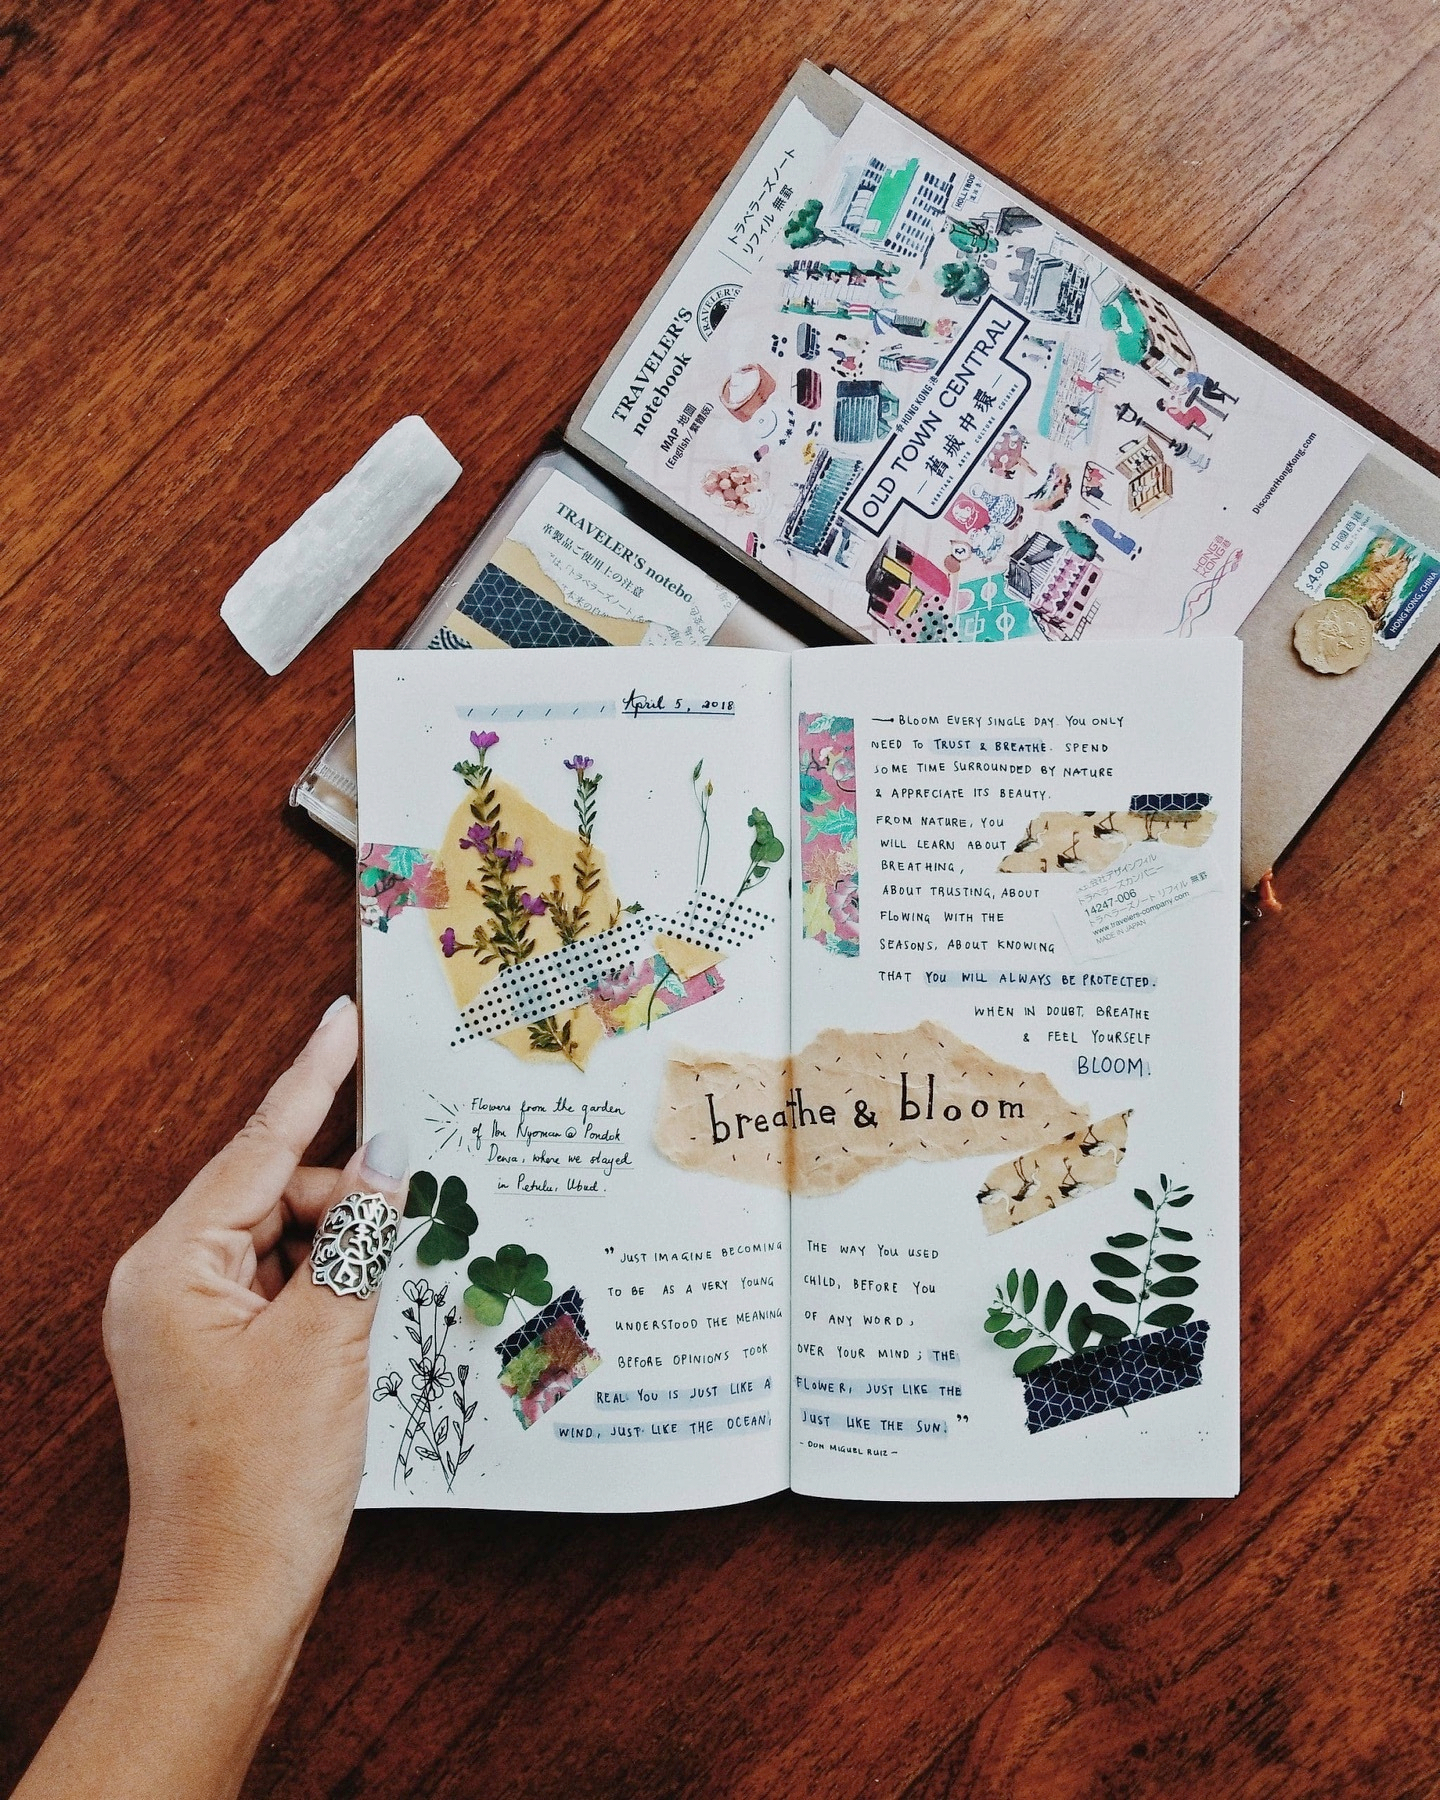 トラベラーズノート
リフィル 無罫
TRAVELER'S
notebook
TRAVELER'S
MAP 地圖
(English/繁體版)
HOLLYWOOD
HONG KONG 香港
OLD TOWN CENTRAL
舊城中環
HERITAGE ARTS CULTURE CUISINE
DiscoverHongKong.com
HONG
KONG
香港
中國香港
$4.90
HONG KONG, CHINA
TRAVELER'S notebo
革製品ご使用上の注意
April 5, 2018
Flowers from the garden
of Ibu Nyoman @ Pondok
Dewa, where we stayed
in Petulu, Ubud.
BLOOM EVERY SINGLE DAY. YOU ONLY
NEED TO TRUST & BREATHE. SPEND
SOME TIME SURROUNDED BY NATURE
& APPRECIATE ITS BEAUTY.
FROM NATURE, YOU
WILL LEARN ABOUT
BREATHING,
ABOUT TRUSTING, ABOUT
FLOWING WITH THE
SEASONS, ABOUT KNOWING
THAT YOU WILL ALWAYS BE PROTECTED.
WHEN IN DOUBT, BREATHE
& FEEL YOURSELF
BLOOM.
会社デザインフィル
トラベラーズカンパニー
14247-006
トラベラーズノート リフィル 無罫
www.travelers-company.com
MADE IN JAPAN
breathe & bloom
"JUST IMAGINE BECOMING THE WAY YOU USED
TO BE AS A VERY YOUNG CHILD, BEFORE YOU
UNDERSTOOD THE MEANING OF ANY WORD,
BEFORE OPINIONS TOOK OVER YOUR MIND; THE
REAL YOU IS JUST LIKE A FLOWER, JUST LIKE THE
WIND, JUST LIKE THE OCEAN, JUST LIKE THE SUN."
- DON MIGUEL RUIZ -